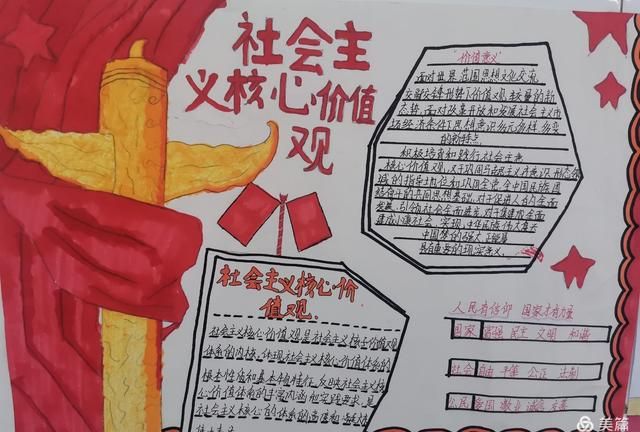 社会主
义核心价值
观
"价值意义"
面对世界范围思想文化交流
交融交锋形势下价值观较量的新
态势，面对改革开放和发展社会主义市
场经济条件下思想意识多元多样多变
的新特点
积极培育和践行社会主义
核心价值观，对于巩固马克思主义在意识形态领
域的指导地位和巩固全党全国人民团
结奋斗的共同思想基础，对于促进人的全面
发展，引领社会全面进步，对于集聚全面
建成小康社会，实现中华民族伟大复兴
中国梦的强大正能量
具有重要的现实意义。
社会主义核心价
值观.
社会主义核心价值观是社会主义核心价值观
体系的内核，体现社会主义核心价值体系的
根本性质和基本特征，反映社会主义核
心价值体系的丰富内涵和实践要求，是
社会主义核心价值体系的高度凝练和集中表达
人民有信仰 国家才有力量
国家 富强 民主 文明 和谐
社会 自由 平等 公正 法制
公民 爱国 敬业 诚信 友善
美篇